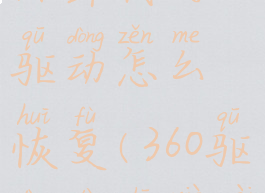 qū dòng zěn me
驱动怎么
huī fù qū
恢复(360驱